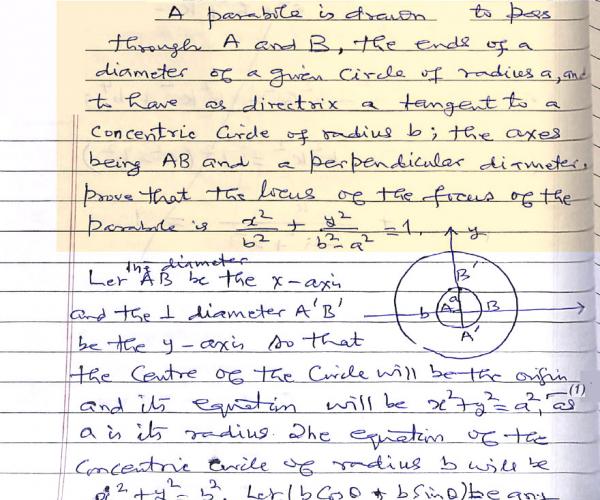 A parabola is drawn to pass
through A and B, the ends of a
diameter of a given circle of radius a, and
to have as directrix a tangent to a
concentric circle of radius b; the axes
being AB and a perpendicular diameter,
prove that the locus of the focus of the
parabola is x²/b² + y²/(b²-a²) = 1.
Let the diameter AB be the x-axis
and the ⊥ diameter A'B'
be the y-axis so that
the centre of the circle will be the origin
and its equation will be x²+y²=a², as (1)
a is its radius. The equation of the
concentric circle of radius b will be
x²+y²=b². Let (b cosθ, b sinθ) be any
y
B'
a
A
B
b
A'